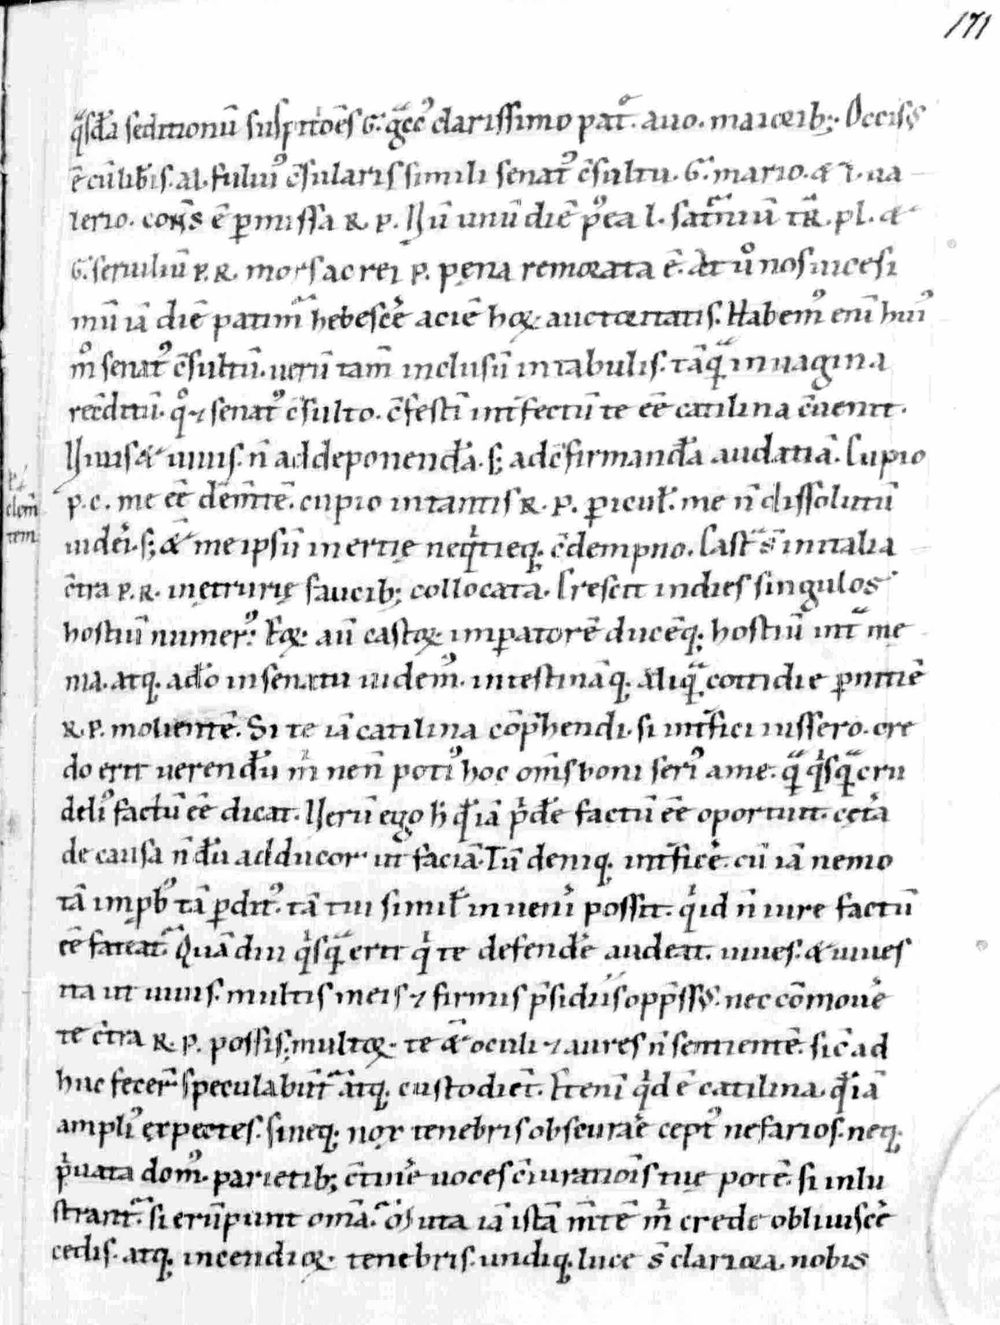 171
q̄sdā seditionū suspitiōes G. g̃cc᷒ clarissimo pat̃. auo. maiorib;. Occisꝰ
ē cū lib̃is. M. fului᷒ c̃sularis simili senat᷒ c̃sultu. G. mario. & l. ua
lerio. cons̄ ē ꝑmissa R. P. Nū unū diē p᷒ea l. sat̃niū TR̃. pl. &
G. seruiliū P. R. mors ac rei p. pena remorata ē. At u᷒ nos uicesi
mū iā diē patim̃ hebesc̃e aciē hoꝝ auctoritatis. Habem᷒ eni hui᷒
m᷒ senat᷒ c̃sultū. uerū tam̃ inclusū in tabulis. tāq̃ in uagina
recōditū. q᷒ ⁊ senat᷒ c̃sulto. c̃festi int̃fectū te eē catilina c̃uenit.
Uiuis & uiuis. ñ ad deponendā. s; ad c̃firmandā audatiā. Cupio
p. c. me eē clem̃tē. cupio in tantis R. P. ꝑicul̃. me ñ dissolutū
uideri. s; & me ipsū inertię neq̃tieq; c̃dempno. Castr̃ s̄ in italia
c̃tra P. R. in ętrurię faucib; collocata. Crescit in dies singulos
hostiū numer᷒. Eoꝝ aū castroꝝ imperatorē ducēq; hostiū int̃ me
nia. atq; adeo in senatu uidem᷒. intestināq; aliq̃ cottidie ꝑnitiē
R. P. molientē. Si te iā catilina cōp̃hendi. si int̃fici iussero. cre
do erit uerendū m̃ ne ñ poti᷒ hoc om̃s boni seri᷒ a me. q̃ q̃sq̃ cru
deli᷒ factū eē dicat. Uerū ego h̄ q̃ iā p̃dē factū eē oportuit. cętã
de causa ñdū adducor ut faciā. Tū deniq; int̃ficē. cū iā nemo
tā imp̃b᷒ tā ꝑdit᷒. tā tui simil̃ inueniri possit. q̃ id ñ iure factū
eē fateat̃. Quādiu q̃sq̃ erit q̃ te defendē audeat. uiues. & uiues
ita ut uiuis. multis meis ⁊ firmis p̃sidiis opp̃ssꝰ. nec cōmouē
te c̃tra R. P. possis. multoꝝ te &̄ oculi ⁊ aures ñ sentientē. sic̃ ad
huc fecer̃ speculabūt̃ atq; custodiēt. Eteni q̃d ē catilina. q̃ iā
ampli᷒ expectes. si neq; nox tenebris obscurare cept᷒ nefarios. neq;
p̃uata dom᷒. parietib; c̃tinē uoces c̃iurationis tuę potē. si inlu
strant̃. si erūpunt om̃a. Muta iā istā m̃tē m̃ crede obliuiscē
cedis. atq; incendioꝝ. teneris undiq; luce s̄ clariora. nobis
clem̃
tem